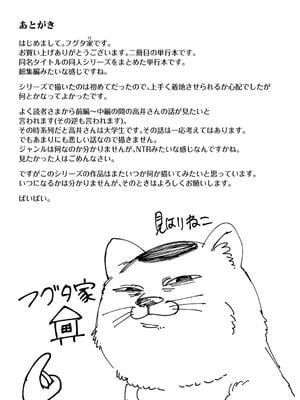 あとがき
はじめまして。フグタ家です。
お買い上げありがとうございます。二冊目の単行本です。
同名タイトルの同人シリーズをまとめた単行本です。
総集編みたいな感じですね。
シリーズで描いたのは初めてだったので、上手く着地させられるか心配でしたが
何とかなってよかったです。
よく読者さまから前編〜中編の間の高井さんの話が見たいと
言われます(その逆も言われます)。
その時系列だと高井さんは大学生です。その話は一応考えてはあります。
でもあまりにも悲しい話なので描きません。
ジャンルは何なのか分かりませんが、NTRみたいな感じなんですかね。
見たかった人はごめんなさい。
ですがこのシリーズの作品はまたいつか何か描いてみたいと思っています。
いつになるかは分かりませんが、そのときはよろしくお願いします。
ばいばい。
見はりねこ
フグタ家